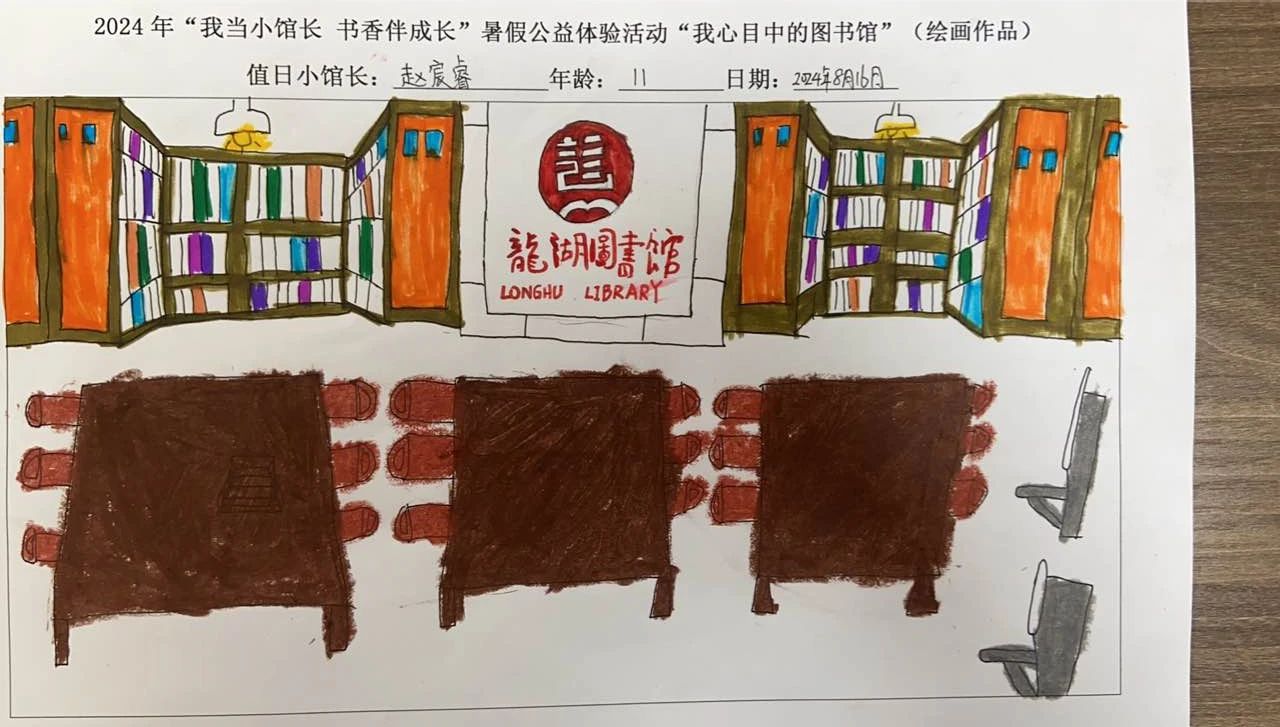 2024 年“我当小馆长 书香伴成长”暑假公益体验活动“我心目中的图书馆”（绘画作品）
值日小馆长：赵宸睿 年龄：11 日期：2024年8月16日
龍湖圖書馆
LONGHU LIBRARY